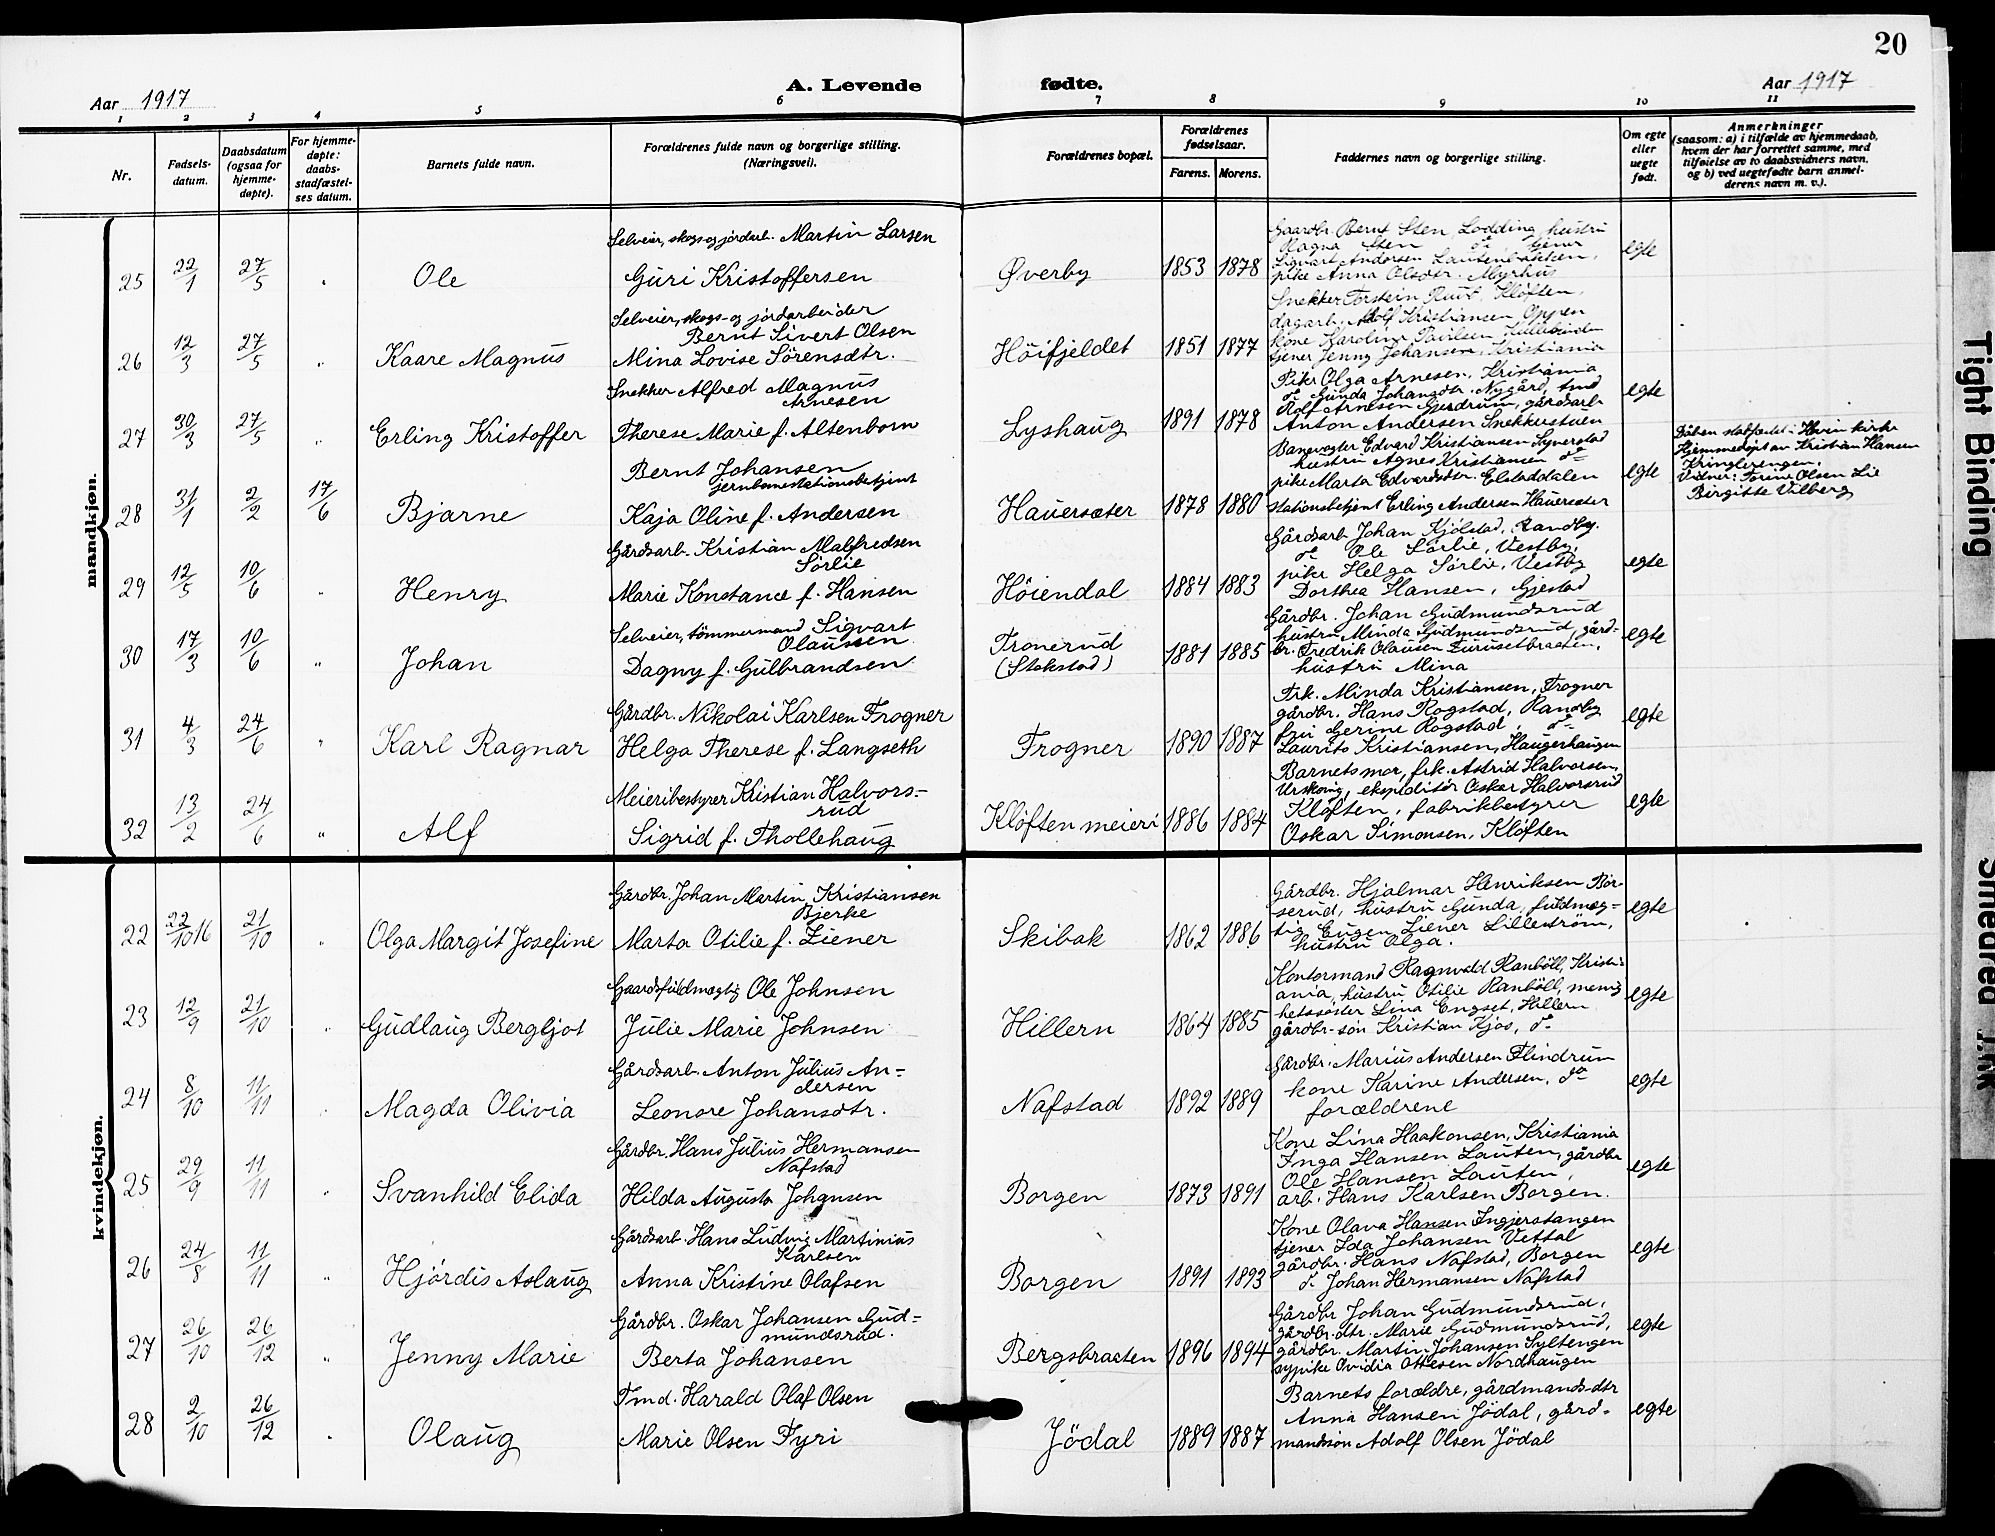 20
Aar 1917
A. Levende
fødte.
Aar 1917
1 2 3 4 5 6 7 8 9 10 11
Nr.
Fødsels-
datum.
Daabsdatum
(ogsaa for
hjemme-
døpte).
For hjemme-
døpte:
daabs-
stadfæstel-
ses datum.
Barnets fulde navn.
Forældrenes fulde navn og borgerlige stilling.
(Næringsvei).
Forældrenes bopæl.
Forældrenes
fødselsaar.
Farens. Morens.
Faddernes navn og borgerlige stilling.
Om egte
eller
uegte
født.
Anmerkninger
(saasom: a) i tilfælde av hjemmedaab,
hvem der har forrettet samme, med
tilføielse av to daabsvidners navn,
og b) ved uegtefødte barn anmel-
derens navn m. v.).
mandkjøn.
25 22/1 27/5 " Ole
Selveier, skogs og jordarb. Martin Larsen
Guri Kristoffersen
Øverby 1853 1878
Gaardbr. Bernt Sten, Lodding, hustru
Ragna Sten do tjener
Sigvart Andersen Lautenbakken,
pike Anna Olsdtr. Myrhus
egte
26 12/3 27/5 " Kaare Magnus
Selveier, skogs- og jordarbeider
Bernt Sivert Olsen
Mina Lovise Sørensdtr.
Höifjeldet 1851 1877
Snekker Torstein Ruud, Klöften,
dagarb. Adolf Kristiansen Oppen
kone Karoline Paulsen
tjener Jenny Johansen, Kristiania
27 30/3 27/5 " Erling Kristoffer
Snekker Alfred Magnus
Arnesen
Therese Marie f. Altenborn
Lyshaug 1891 1878
Pike Olga Arnesen, Kristiania
do Gunda Johansdtr. Nygård, tmd
Rolf Arnesen Gjerdrum, gårdsarb.
Anton Andersen Snekkerstuen
egte
28 31/1 2/2 17/6 Bjarne
Bernt Johansen
jernbanestationsbetjent
Kaja Oline f. Andersen
Hauersæter 1878 1880
Banevogter Edvard Kristiansen Syverstad
hustru Agnes Kristiansen do
pike Marta Edvardsdtr. Elstaddalen
stationsbetjent Erling Andersen Hauersæter
egte
Dåben stadfæstet i Hovin kirke
Hjemmedöpt av Kristian Hansen
Kringlerengen.
Vidner: Torine Olsen Lie
Birgitte Vilberg
29 12/5 10/6 " Henry
Gårdsarb. Kristian Malfredsen
Sörlie
Marie Konstance f. Hansen
Höiendal 1884 1883
Gårdsarb Johan Kjölstad, Randby.
do Ole Sörlie, Vestby,
pike Helga Sörlie, Vestby
Dorthea Hansen, Gjestad
egte
30 17/3 10/6 " Johan
Selveier, tömmermand Sigvart
Olaussen
Dagny f. Gulbrandsen
Tronerud
(Stokstad) 1881 1885
Gårdbr. Johan Gudmundsrud
hustru Minda Gudmundsrud, gård-
br. Fredrik Olausen Furusetbraaten,
hustru Mina
egte
31 4/3 24/6 " Karl Ragnar
Gårdbr. Nikolai Karlsen Frogner
Helga Therese f. Langseth
Frogner 1890 1887
Frk. Minda Kristiansen, Frogner
gårdbr. Hans Rogstad, Randby
fru Gerine Rogstad, do
Laurits Kristiansen, Haugerhaugen
egte
32 13/2 24/6 " Alf
Meieribestyrer Kristian Halvors-
rud
Sigrid f. Thollehaug
Klöften meieri 1886 1884
Barnets mor, frk. Astrid Halvorsen,
Urskoug, ekspeditör Oskar Halvorsrud
Klöften, fabrikbestyrer
Oskar Simonsen, Klöften
egte
kvindekjøn.
22 22/10 16 21/10 " Olga Margit Josefine
Gårdbr. Johan Martin Kristiansen
Bjerke
Marta Otilie f. Ziener
Skibak 1862 1886
Gårdbr. Hjalmar Henriksen Bor-
serud, hustru Gunda, fuldmæg-
tig Eugen Ziener Lilleström,
hustru Olga.
egte
23 12/9 21/10 " Gudlaug Bergljot
Gaardsfuldmægtig Ole Johnsen
Julie Marie Johnsen
Hillern 1864 1885
Kontormand Ragnvald Ranböll, Kristi-
ania, hustru Otilie Ranböll, menig
hetssöster Lina Engset, Hillern
gårdbr-sön Kristian Kjos, do
egte
24 8/10 11/11 " Magda Olivia
Gårdsarb. Anton Julius An-
dersen
Leonore Johansdtr.
Nafstad 1892 1889
Gårdbr. Marius Andersen Flindrum
kone Karine Andersen, do
forældrene
egte
25 29/9 11/11 " Svanhild Elida
Gårdbr. Hans Julius Hermansen
Nafstad
Hilda Augusta Johansen
Borgen 1873 1891
Kone Lina Haakonsen, Kristiania
Inga Hansen Lauten, gårdbr
Ole Hansen Lauten,
arb. Hans Karlsen Borgen.
egte
26 24/8 11/11 " Hjördis Aslaug
Gårdsarb. Hans Ludvig Martinius
Karlsen
Anna Kristine Olafsen
Borgen 1891 1893
Kone Olava Hansen Ingjerstangen
tjener Ida Johansen Vettal
gårdbr. Hans Nafstad, Borgen
do Johan Hermansen Nafstad
egte
27 26/10 26/12 " Jenny Marie
Gårdbr. Oskar Johansen Gud-
mundsrud.
Berta Johansen
Bergsbraaten 1896 1894
Gårdbr Johan Gudmundsrud,
gårdbr.dtr. Marie Gudmundsrud,
gårdbr. Martin Johansen Syltengen
sypike Ovidia Ottesen Nordhaugen
egte
28 2/10 26/12 " Olaug
Tmd. Harald Olaf Olsen
Marie Olsen Fyri
Jödal 1889 1887
Barnets forældre, gårdmands-dtr
Anna Hansen Jödal, gård-
mandssön Adolf Olsen Jödal
egte
Tight Binding
Smeared Ink